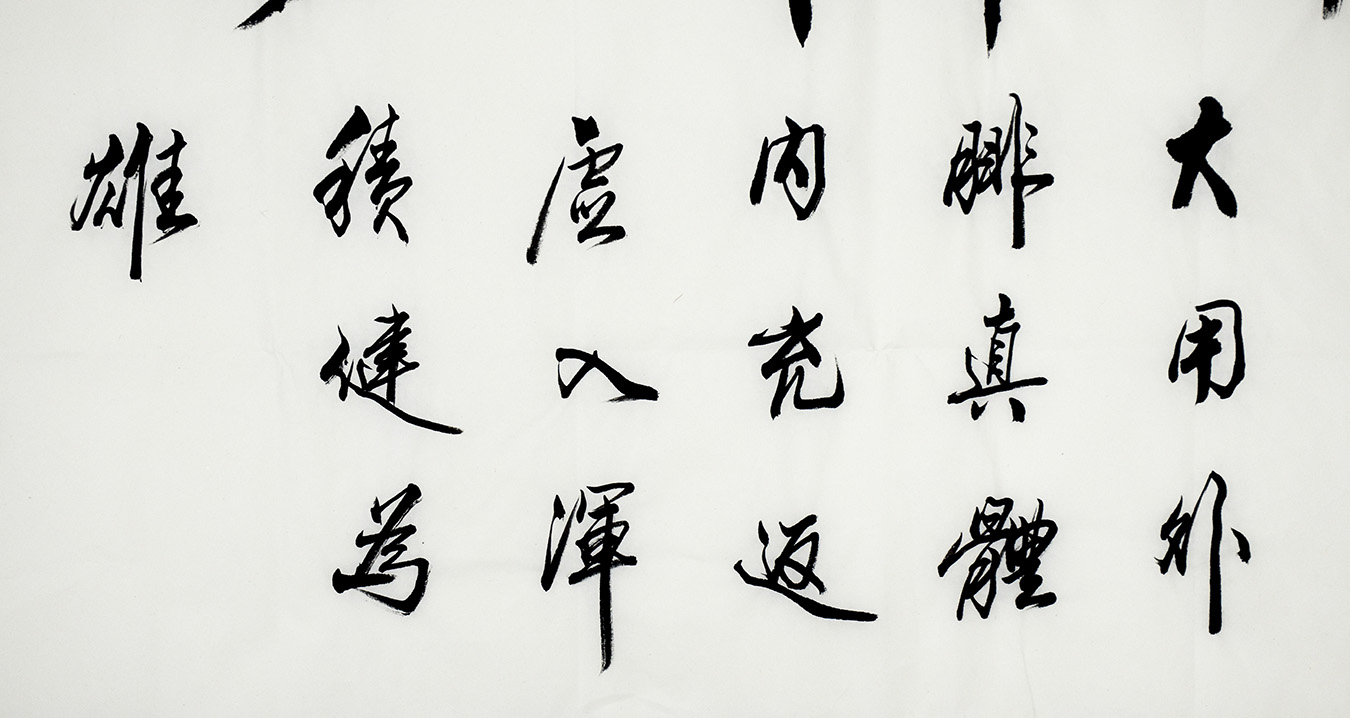 大用外
腓真體
内充返
虛入渾
積健為
雄